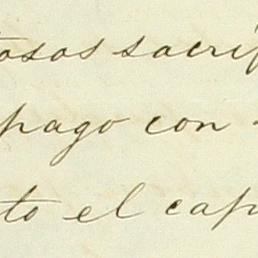 tosos sacrif
pago con
to el cap